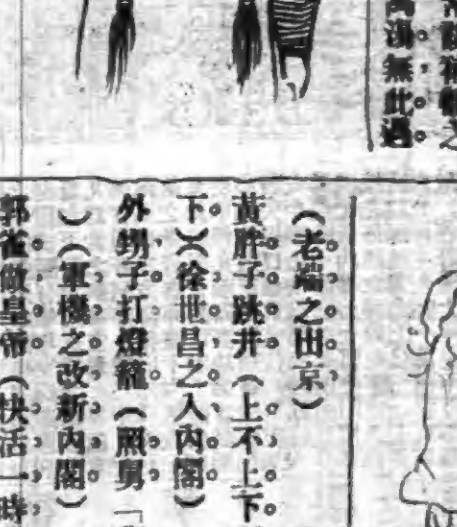 無此過
（老端之出京）
黃胖子跳井（上不上下。
下。）（徐世昌之入內閣）
外甥子打燈籠（照舅「
）（軍機之改新內閣）
郭雀做皇帝（快活一時